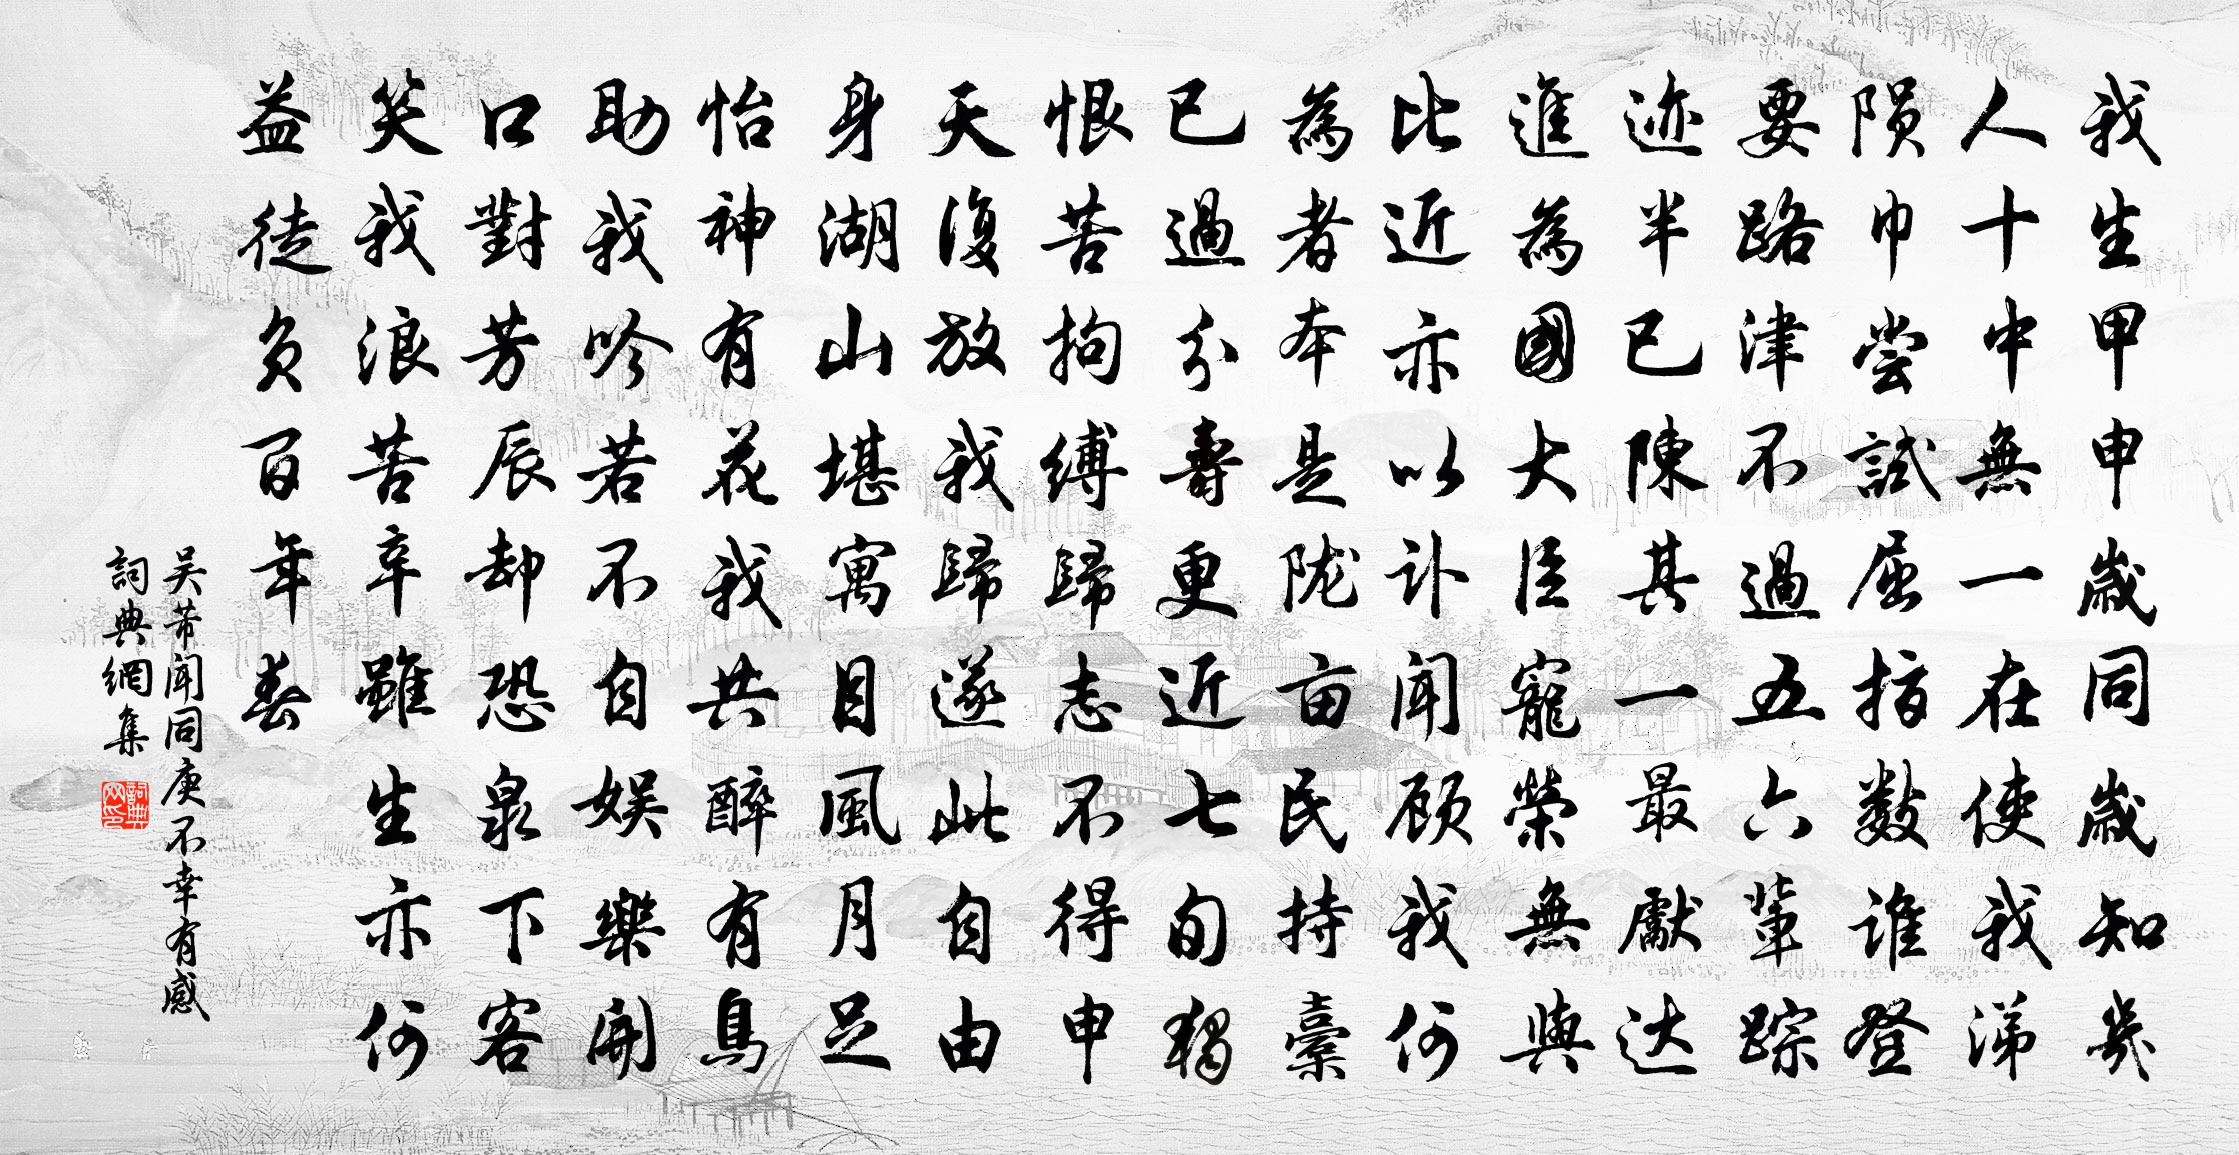 我生甲申歲同歲知幾
人十中無一在使我涕
陨巾嘗試屈指數谁登
要路津不過五六輩踪
迹半已陳其一最獻达
進為國大臣寵榮無與
比近亦以讣聞顾我何
為者本是陇亩民持橐
已過分壽更近七旬獨
恨苦拘縛歸志不得申
天復放我歸遂此自由
身湖山堪寓目風月足
怡神有花我共醉有鳥
助我吟若不自娱樂開
口對芳辰却恐泉下客
笑我浪苦辛雖生亦何
益徒負百年春
吴芾聞同庚不幸有感
詞典網集
詞典网印